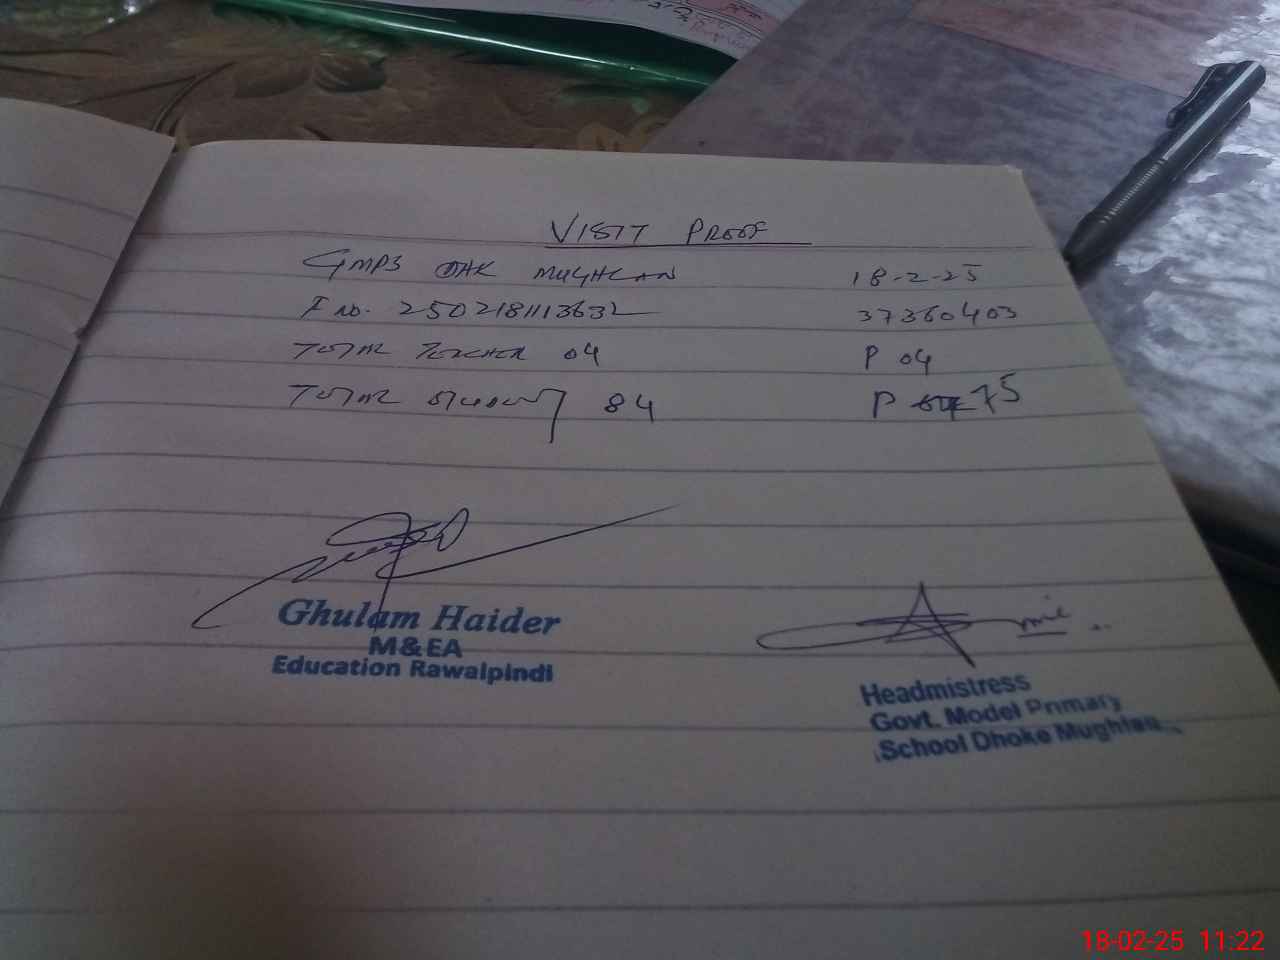 VISIT PROOF
GMPS DHK MUGHLAN 18-2-25
F NO. 250218113632 37360403
TOTAL TEACHER 04 P 04
TOTAL STUDENT 84 P 75
Ghulam Haider
M&EA
Education Rawalpindi
Headmistress
Govt. Model Primary
School Dhoke Mughlan
18-02-25 11:22